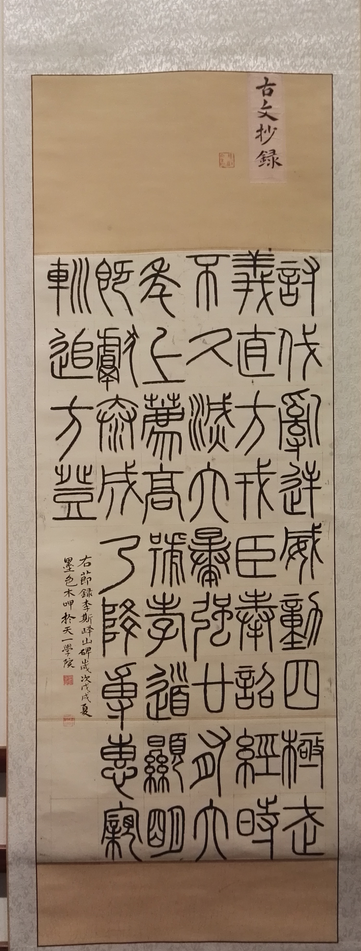 古文抄録
討伐亂逆威動四極武
義直方戎臣奉詔經時
不久滅六暴強廿有六
年上薦高號孝道顯明
既獻泰成乃降專惠親
追方登
右節錄李斯嶧山碑歲次戊戌夏
墨色木呷於天一學院